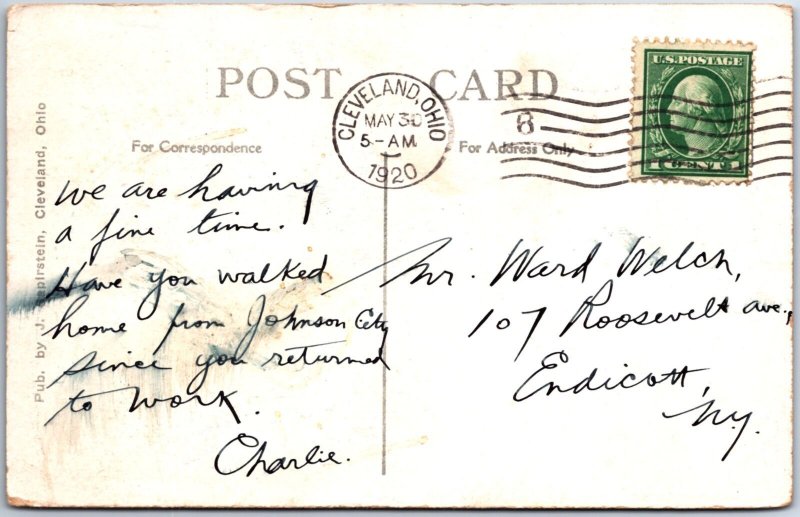 POST CARD
CLEVELAND, OHIO
MAY 30
5-AM
1920
8
U.S. POSTAGE
For Correspondence
For Address Only
Pub. by J. Sapirstein, Cleveland, Ohio
We are having
a fine time.
Have you walked
home from Johnson City
since you returned
to work.
Charlie.
Mr. Ward Welch,
107 Roosevelt ave.,
Endicott,
N.Y.